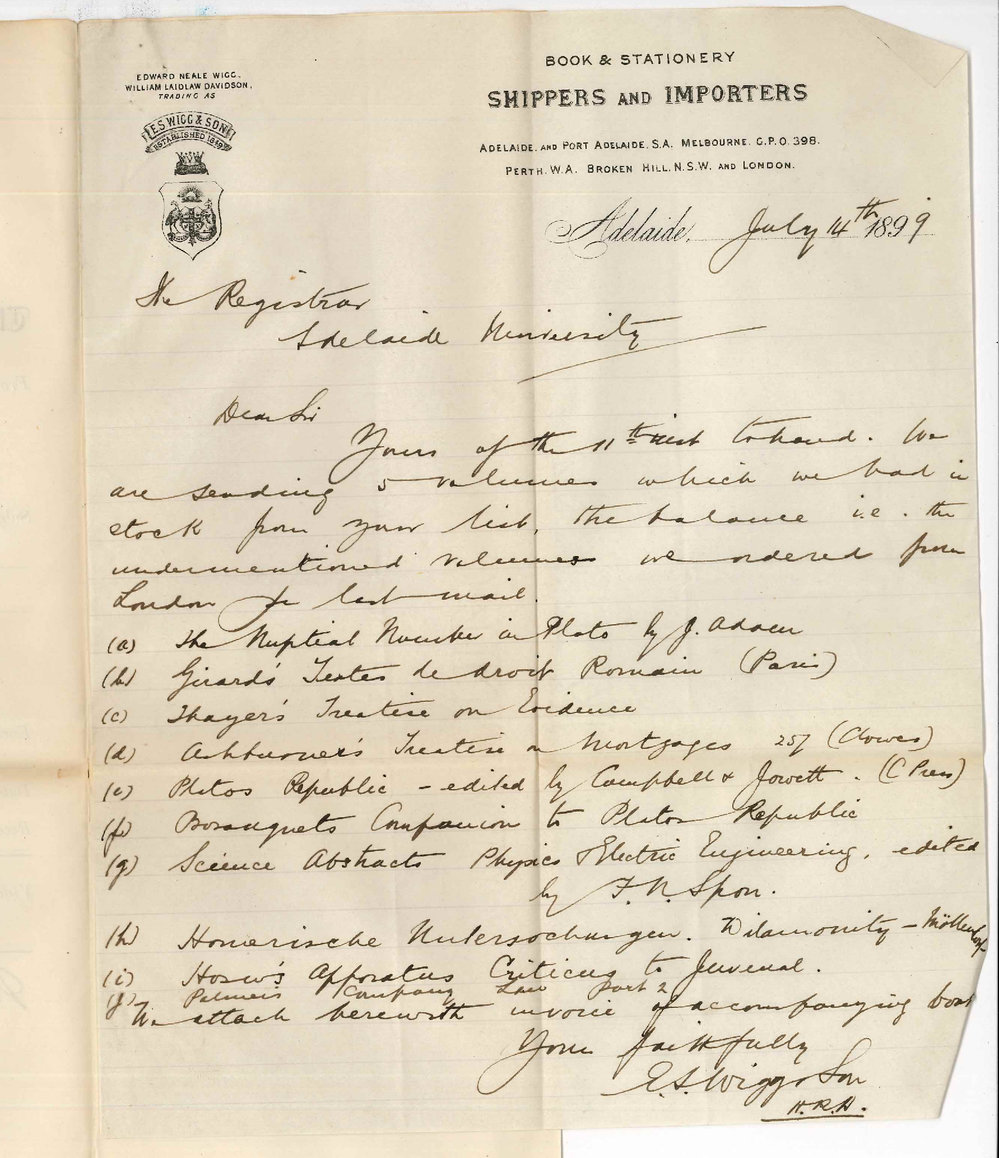 EDWARD NEALE WIGG.
WILLIAM LAIDLAW DAVIDSON,
TRADING AS
E.S. WIGG & SON
ESTABLISHED 1849
BOOK & STATIONERY
SHIPPERS AND IMPORTERS
ADELAIDE. AND PORT ADELAIDE. S.A. MELBOURNE. G.P.O. 398.
PERTH. W.A. BROKEN HILL. N.S.W. AND LONDON.
Adelaide, July 14th 1899
The Registrar
Adelaide University
Dear Sir
Yours of the 11th inst to hand. We
are sending 5 volumes which we had in
stock from your list, the balance i.e. the
undermentioned volumes we ordered from
London last mail.
(a) The Nuptial Number in Plato by J. Adam
(b) Girard's Textes de droit Romain (Paris)
(c) Thayer's Treatise on Evidence
(d) Ashburner's Treatise on Mortgages 25/ (Clowes)
(e) Platos Republic - edited by Campbell & Jowett. (C Press)
(f) Bosanquets Companion to Platos Republic
(g) Science Abstracts Physics & Electric Engineering, edited
by F. N. Spon.
(h) Homerische Untersochungen. Wilamonity -
(i) Hosius Apparatus Criticus to Juvenal.
(j) Palmers Company Law part 2
We attach herewith invoice of accompanying book
Yours faithfully
E. S. Wigg & Son
H.R.H.